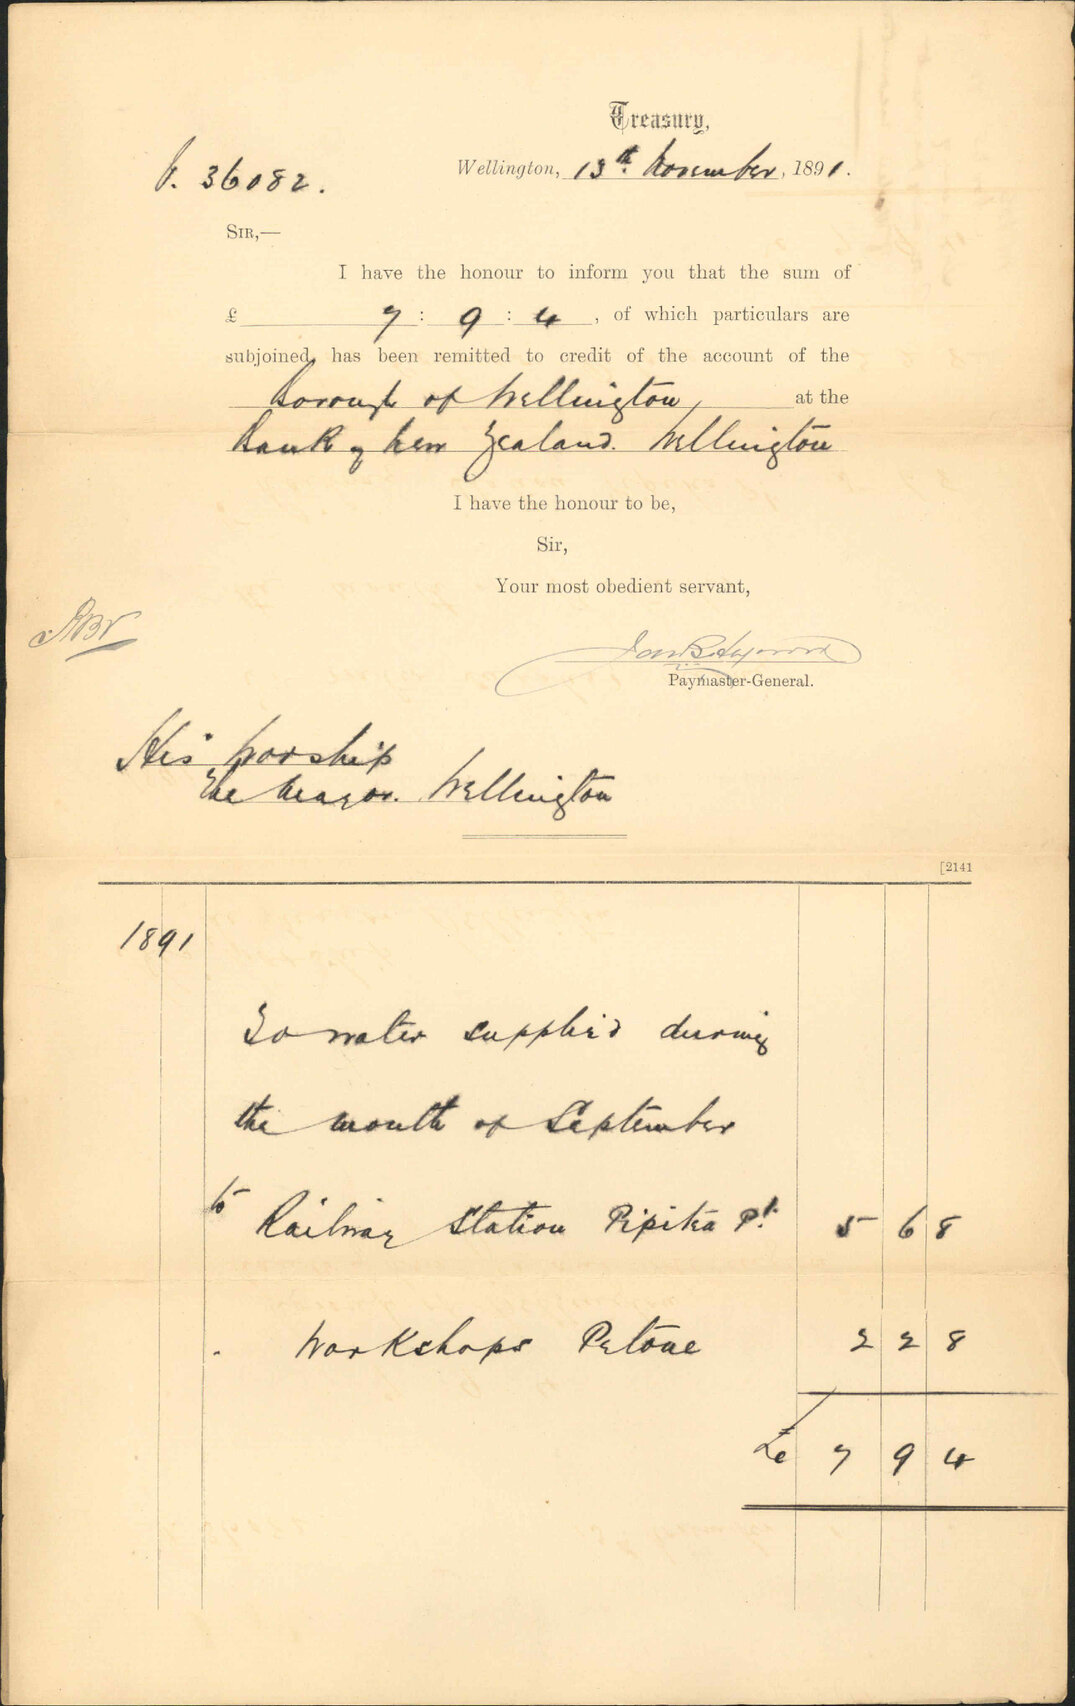 Treasury,
Wellington, 13th November, 1891.
V. 36082.
SIR,—
I have the honour to inform you that the sum of
£ 7 : 9 : 4, of which particulars are
subjoined, has been remitted to credit of the account of the
Borough of Wellington, at the
Bank of New Zealand. Wellington
I have the honour to be,
Sir,
Your most obedient servant,
Paymaster-General.
His Worship
The Mayor. Wellington
[2141
1891
To water supplied during
the month of September
to Railway Station Pipitea Pt. 5 6 8
Workshops Petone 2 2 8
£ 7 9 4